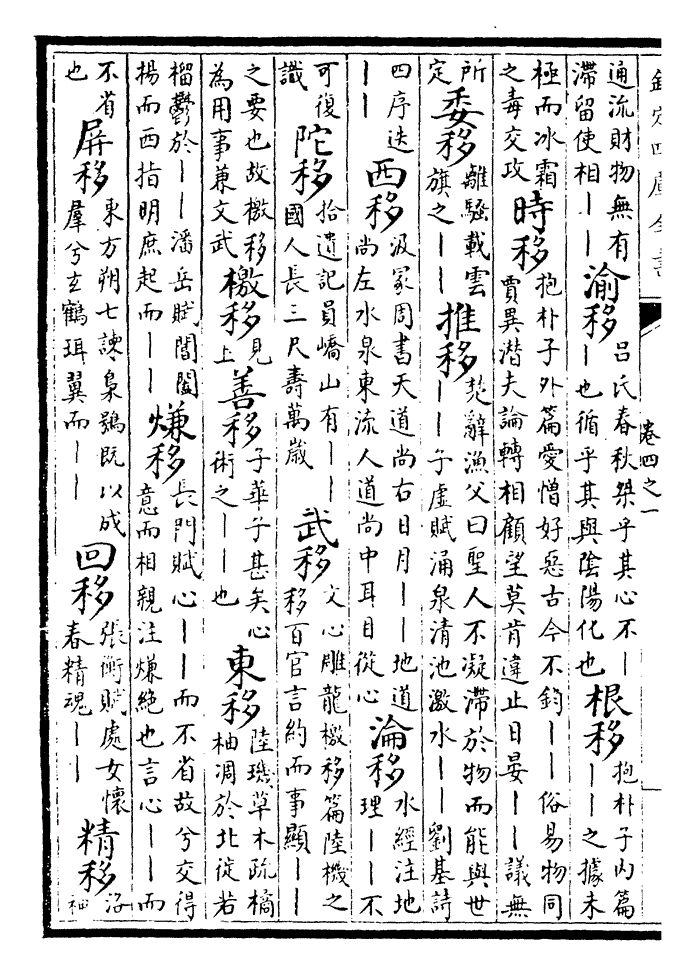 欽定四庫全書
卷四之一
通流財物無有
滯留使相｜｜
渝移
呂氏春秋桀乎其心不｜
｜也循乎其與陰陽化也
根移
抱朴子內篇
｜｜之據未
極而冰霜
之毒交攻
時移
抱朴子外篇愛憎好惡古今不鈞｜｜俗易物同
賈異潛夫論轉相顧望莫肯違止日晏｜｜議無
所
定
委移
離騷載雲
旗之｜｜
推移
楚辭漁父曰聖人不凝滯於物而能與世
｜｜子虛賦涌泉清池激水｜｜劉基詩
四序迭
｜｜
西移
汲冢周書天道尚右日月｜｜地道
尚左水泉東流人道尚中耳目從心
淪移
水經注地
理｜｜不
可復
識
陀移
拾遺記員嶠山有｜｜
國人長三尺壽萬歲
武移
文心雕龍檄移篇陸機之
移百官言約而事顯｜｜
之要也故檄移
為用事兼文武
檄移
見
上
善移
子華子甚矣心
術之｜｜也
東移
陸璣草木疏橘
柚凋於北徙若
榴鬱於｜｜潘岳賦閶闔
揚而西指明庶起而｜｜
慊移
長門賦心｜｜而不省故兮交得
意而相親注慊絶也言心｜｜而
不省
也
屏移
東方朔七諫梟鴞既以成
羣兮玄鶴珥翼而｜｜
回移
張衡賦處女懷
春精魂｜｜
精移
洛
神